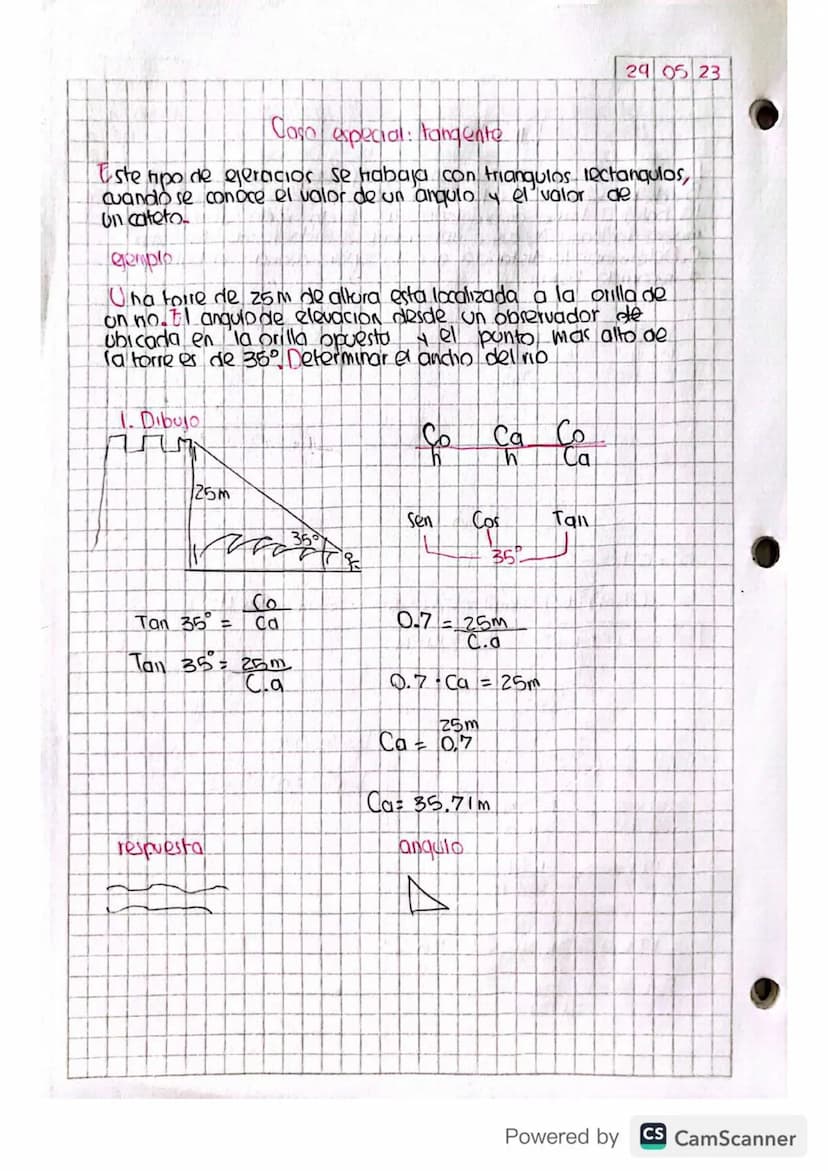 29 05 23
Caso especial: tangente
Este tipo de ejercicios se trabaja con triangulos rectangulos,
cuando se conoce el valor de un angulo y el valor de
un cateto.
ejemplo
Una torre de 25m de altura esta localizada a la orilla de
un rio. El angulo de elevacion desde un observador de
ubicada en la orilla opuesto y el punto mas alto de
la torre es de 35°. Determinar el ancho del rio
1. Dibujo
25m
35°
Co Ca Co
h h Ca
Sen Cos Tan
35°
Tan 35° = Co
Ca
Tan 35° = 25m
C.a
0.7 = 25m
C.a
0.7 · Ca = 25m
25m
Ca = 0,7
Ca = 35.71m
respuesta
angulo
Powered by CS CamScanner